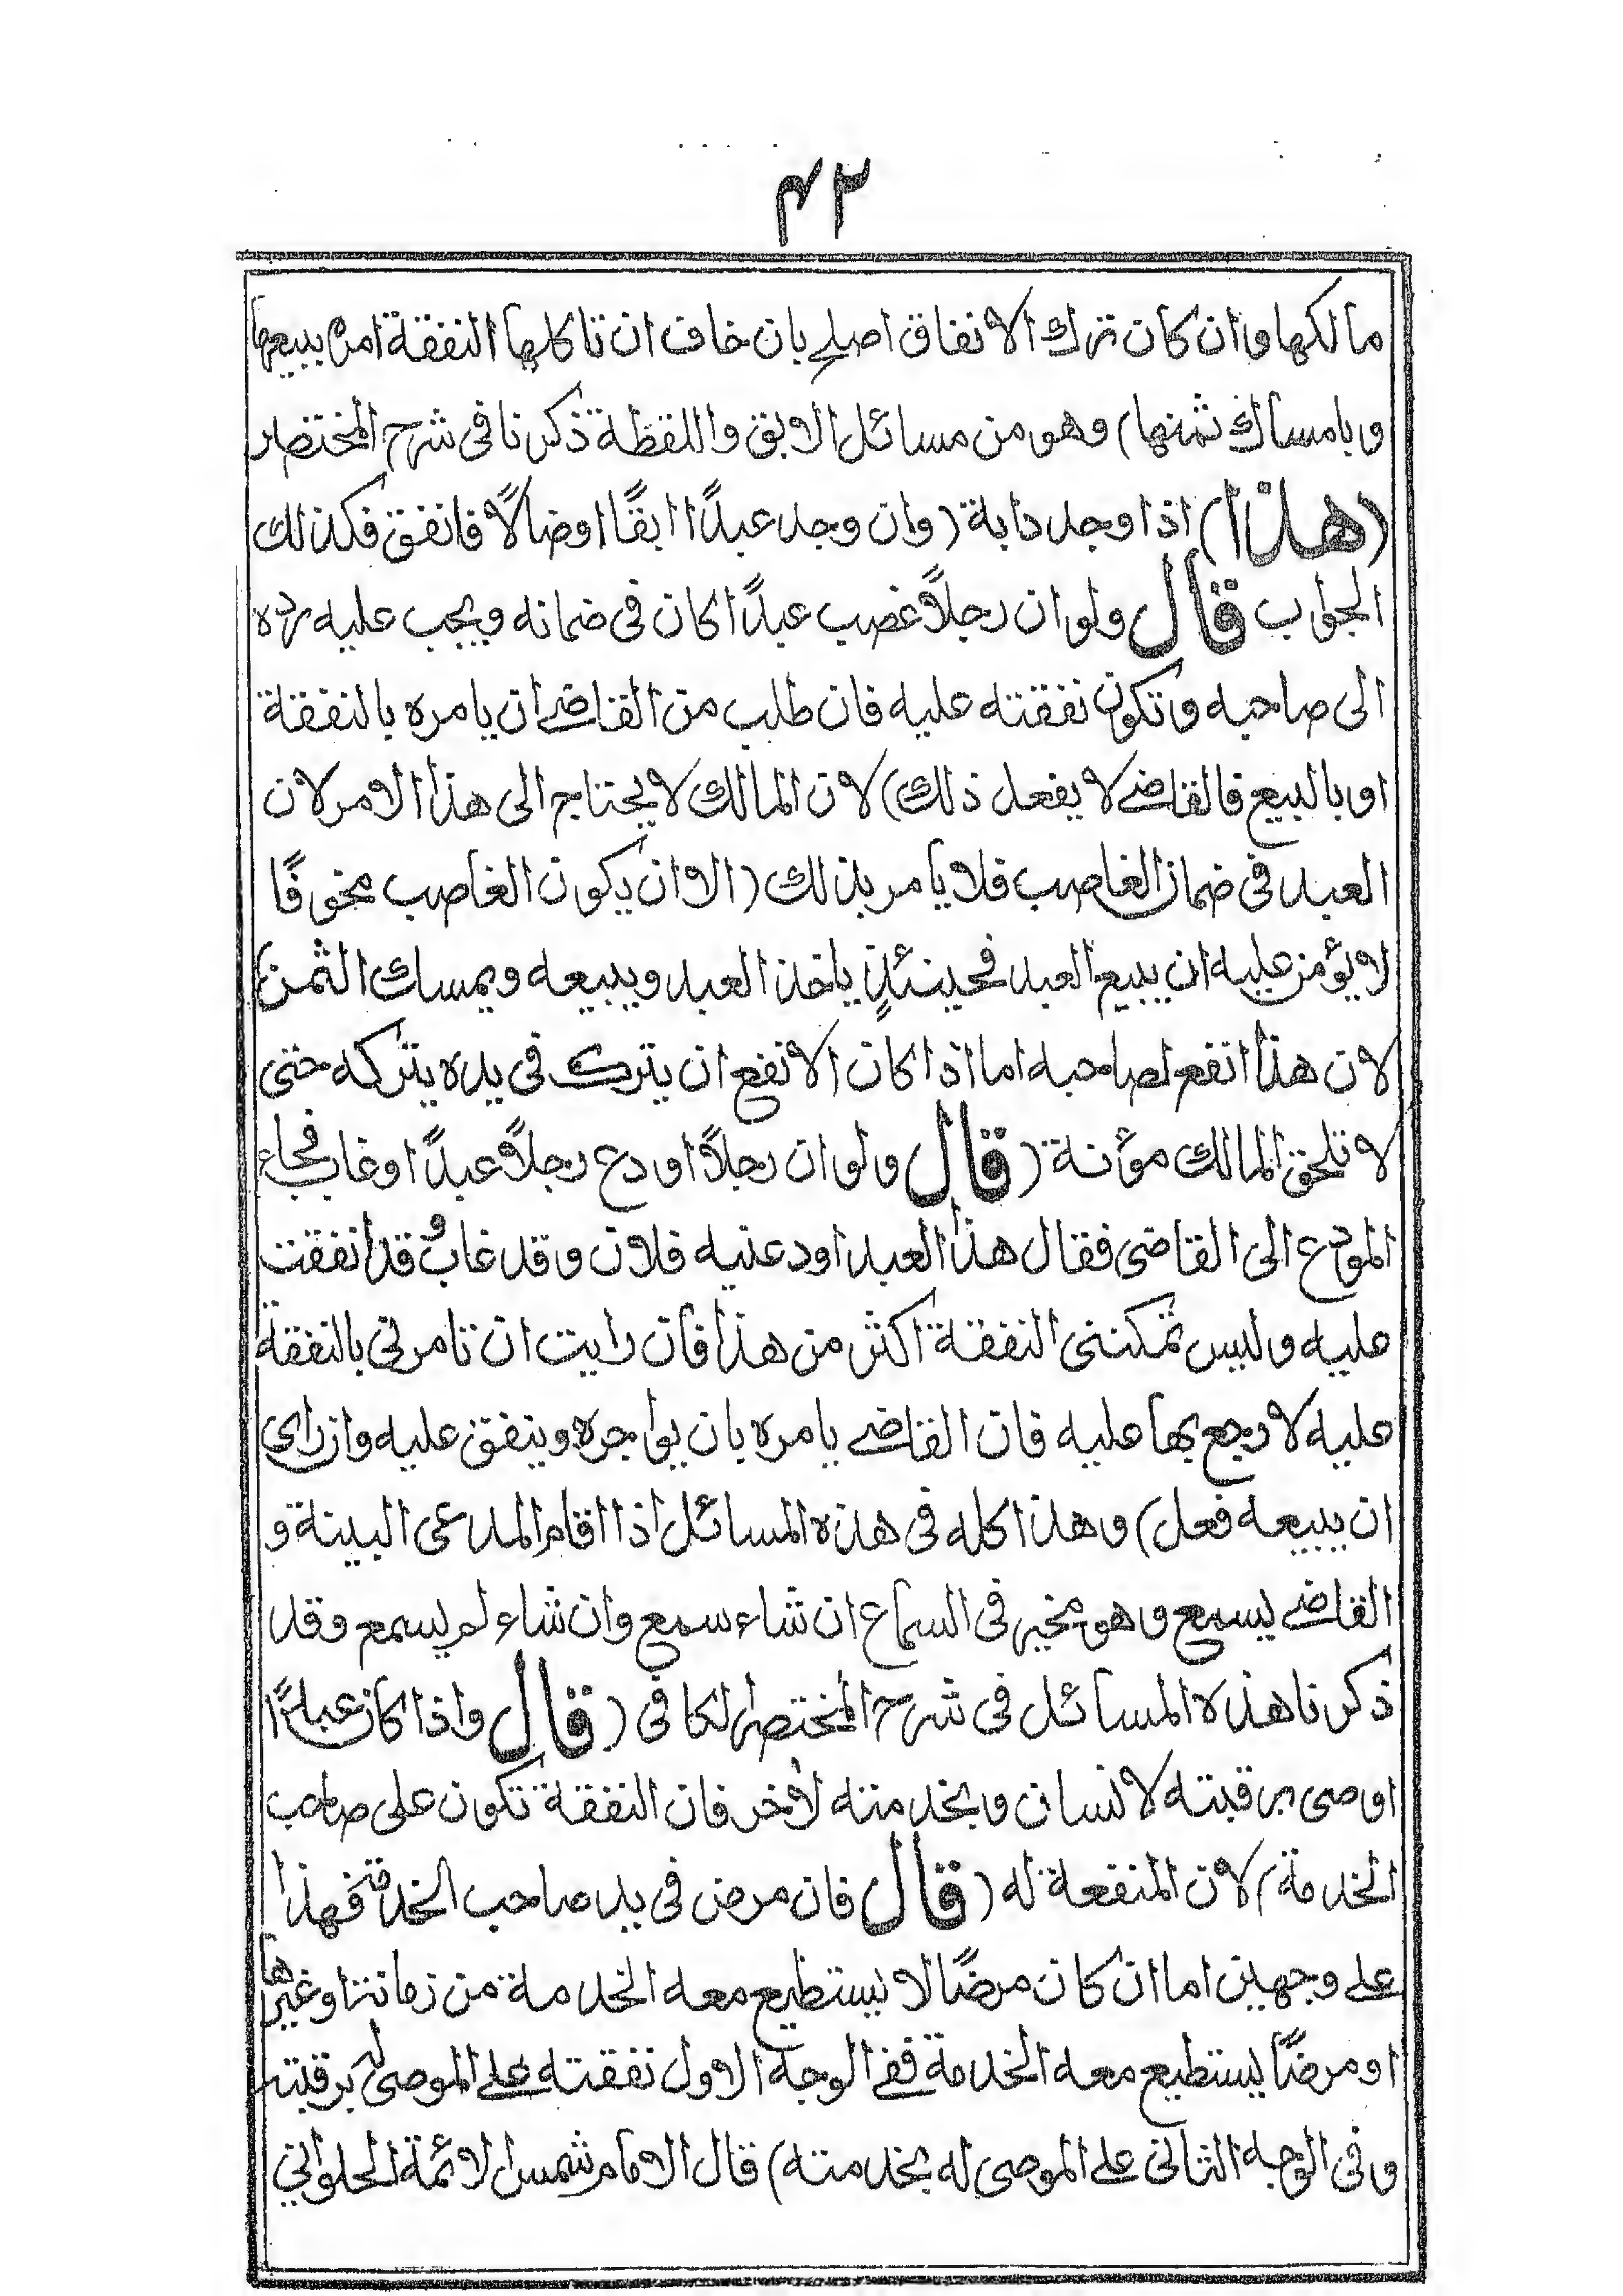 ۴۳
مالكها وان كان ترك الانفاق اصلح بان خاف ان تاكلها النفقة امره ببيعها
وبامساك ثمنها) وهو من مسائل الابق واللقطة ذكرنا فى شرح المختصر
(هذا) اذا وجد دابة (وان وجد عبدًا ابقًا اوضالًا فانفق فكذلك
الجواب قال ولو ان رجلاً غصب عبدًا كان فى ضمانه ويجب عليه رده
الى صاحبه وتكون نفقته عليه فان طلب من القاضے ان يامره بالنفقة
او بالبيع فالقاضے لا يفعل ذلك) لان المالك لا يحتاج الى هذا الامر لان
العبد فى ضمان الغاصب فلا يامر بذلك (الا ان يكون الغاصب مخوفًا
لا يؤمن عليه ان يبيع العبد فحينئذٍ ياخذ العبد ويبيعه ويمسك الثمن)
لان هذا انفع لصاحبه اما اذا كان الانفع ان يترك فى يده يتركه حتى
لا تلحق المالك مؤنة (قال ولو ان رجلاً اودع رجلاً عبدًا وغاب فجاء
المودع الى القاضى فقال هذا العبد اودعنيه فلان وقد غاب وقد انفقت
عليه وليس تمكننى النفقة اكثر من هذا فان رايت ان تامرنى بالنفقة
عليه لارجع بها عليه فان القاضے يامره بان يواجره وينفق عليه وان راى
ان يبيعه فعل) وهذا كله فى هذه المسائل اذا اقام المدعى البينة و
القاضے يسمع وهو مخير فى السماع ان شاء سمع وان شاء لم يسمع وقد
ذكرنا هذه المسائل فى شرح المختصر الكافى (قال واذا كان عبدًا
اوصى برقبته لانسان وبخدمته لاٰخر فان النفقة تكون على صاحب
الخدمة) لان المنفعة له (قال فان مرض فى يد صاحب الخدمة فهذا
علے وجهين اما ان كان مرضًا لا يستطيع معه الخدمة من زمانة او غيرها
او مرضًا يستطيع معه الخدمة ففے الوجه الاول نفقته علے الموصى له برقبته
وفى الوجه الثانى علے الموصى له بخدمته) قال الامام شمس الائمة الحلوانى